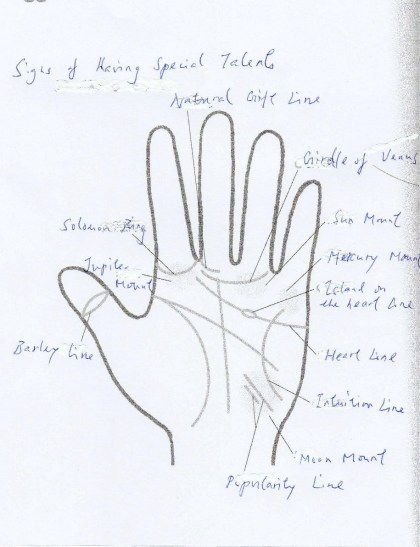 Signs of Having Special Talents
Natural Gift Line
Girdle of Venus
Solomon Ring
Sun Mount
Jupiter
Mount
Mercury Mount
Island on
the heart line
Barley Line
Heart Line
Intuition Line
Moon Mount
Pipularity Line